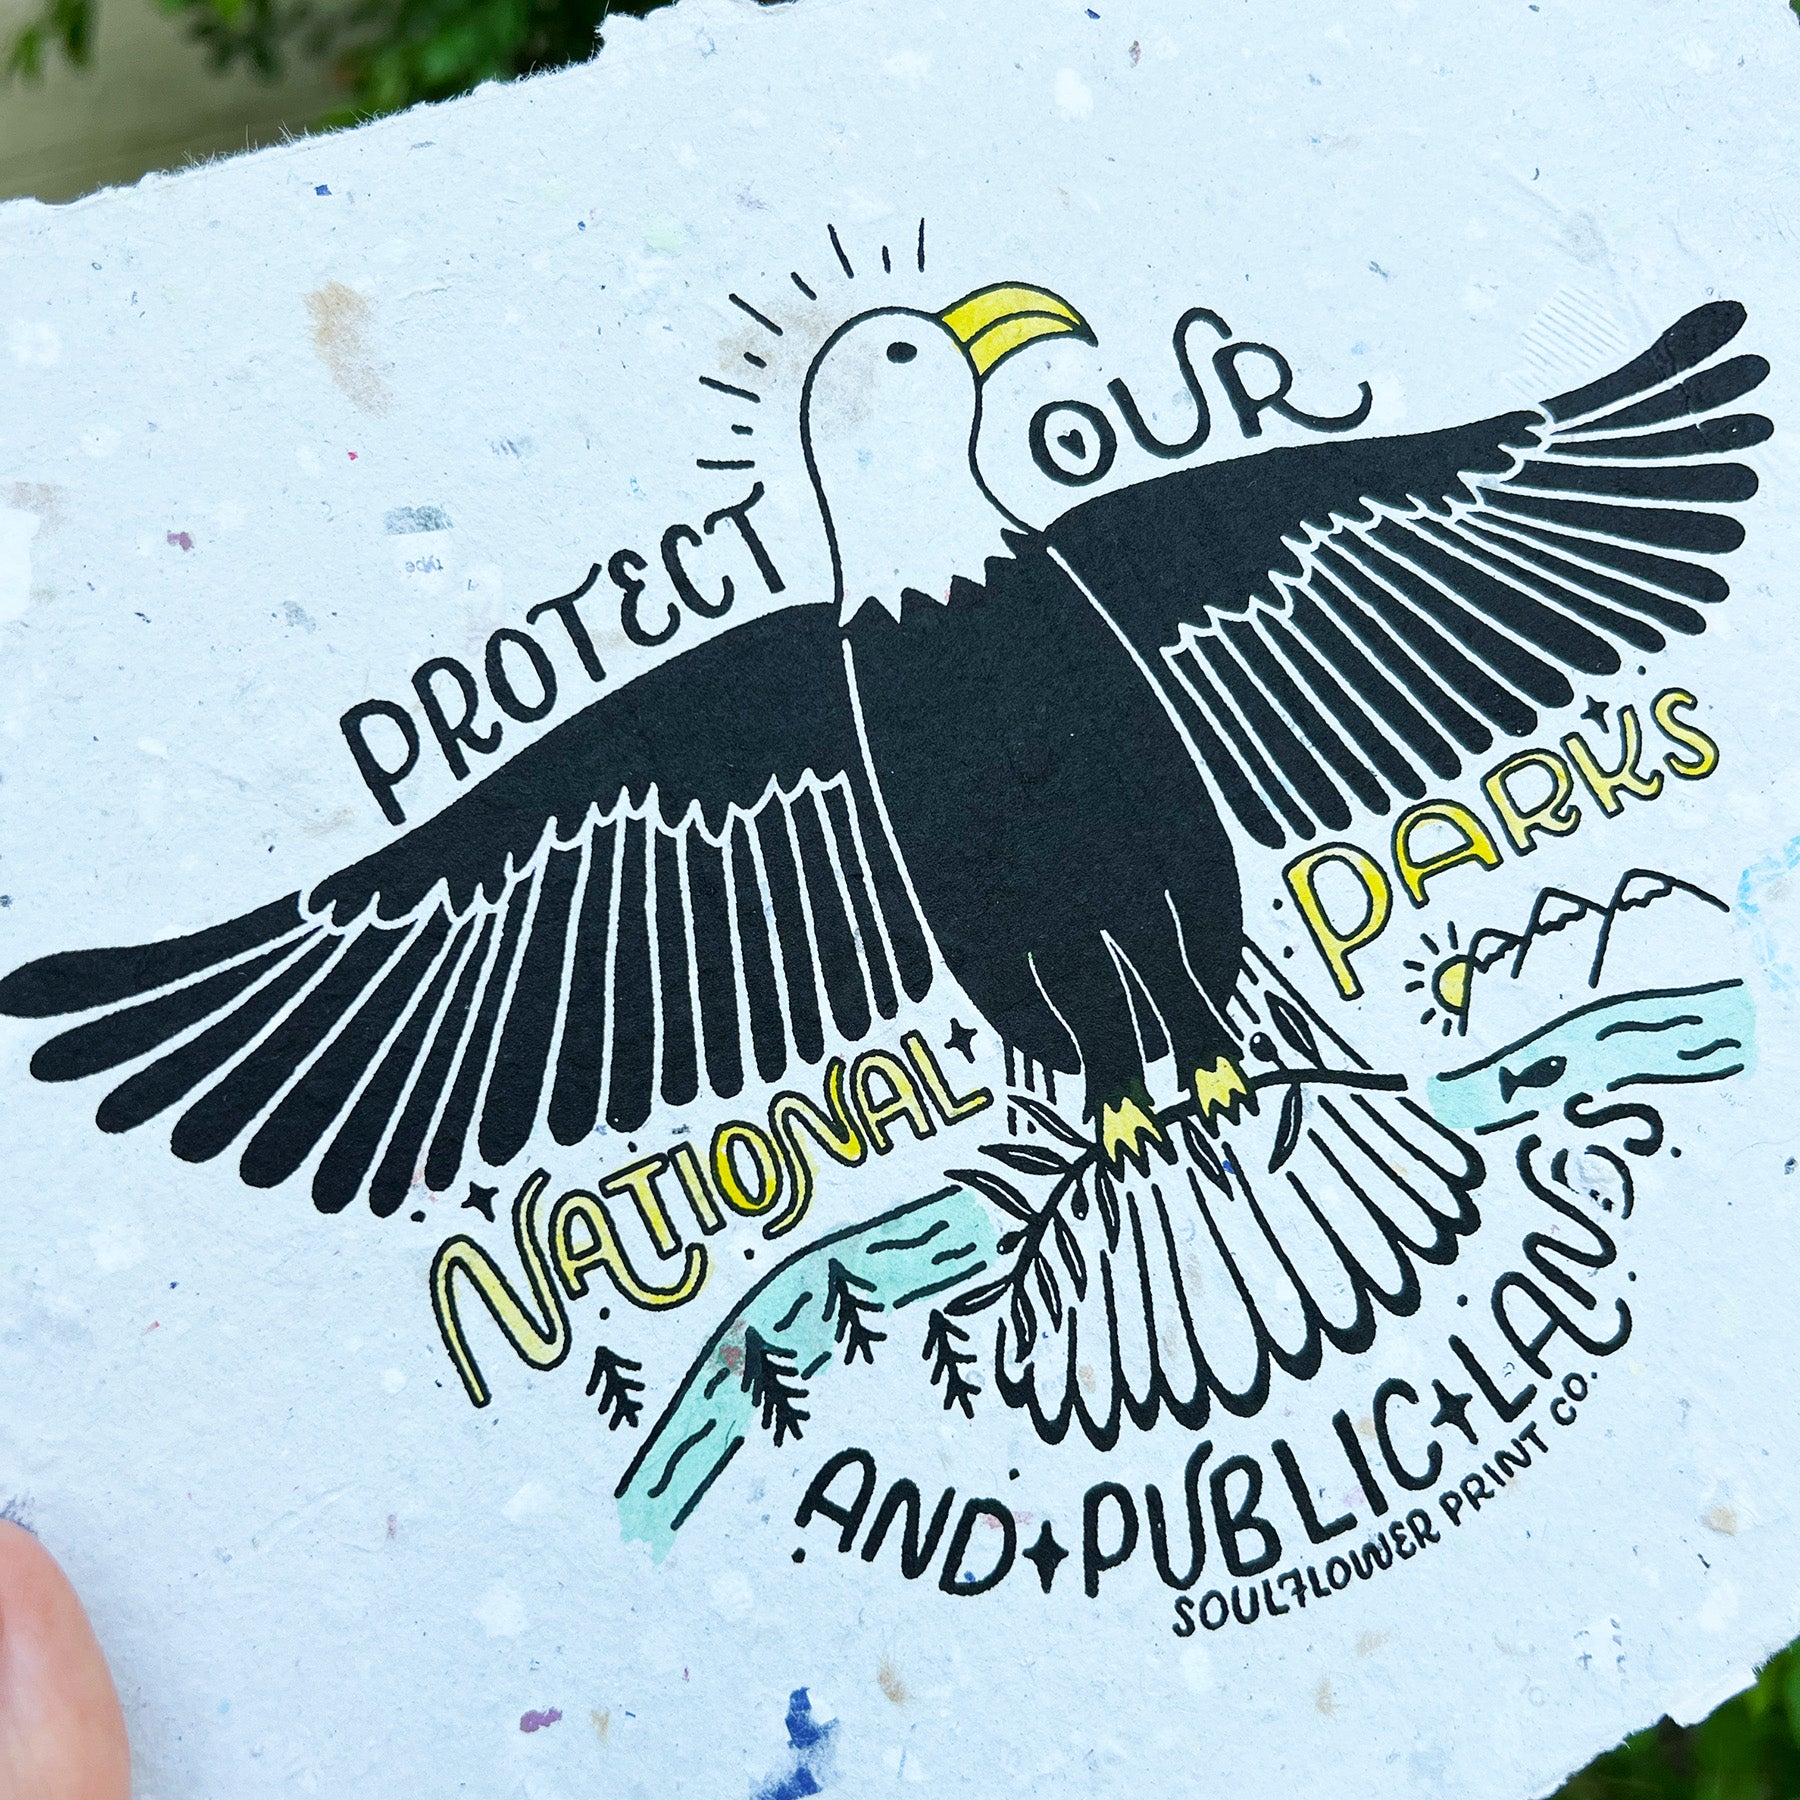 PROTECT OUR
NATIONAL PARKS
AND PUBLIC LANDS
SOULFLOWER PRINT CO.
type